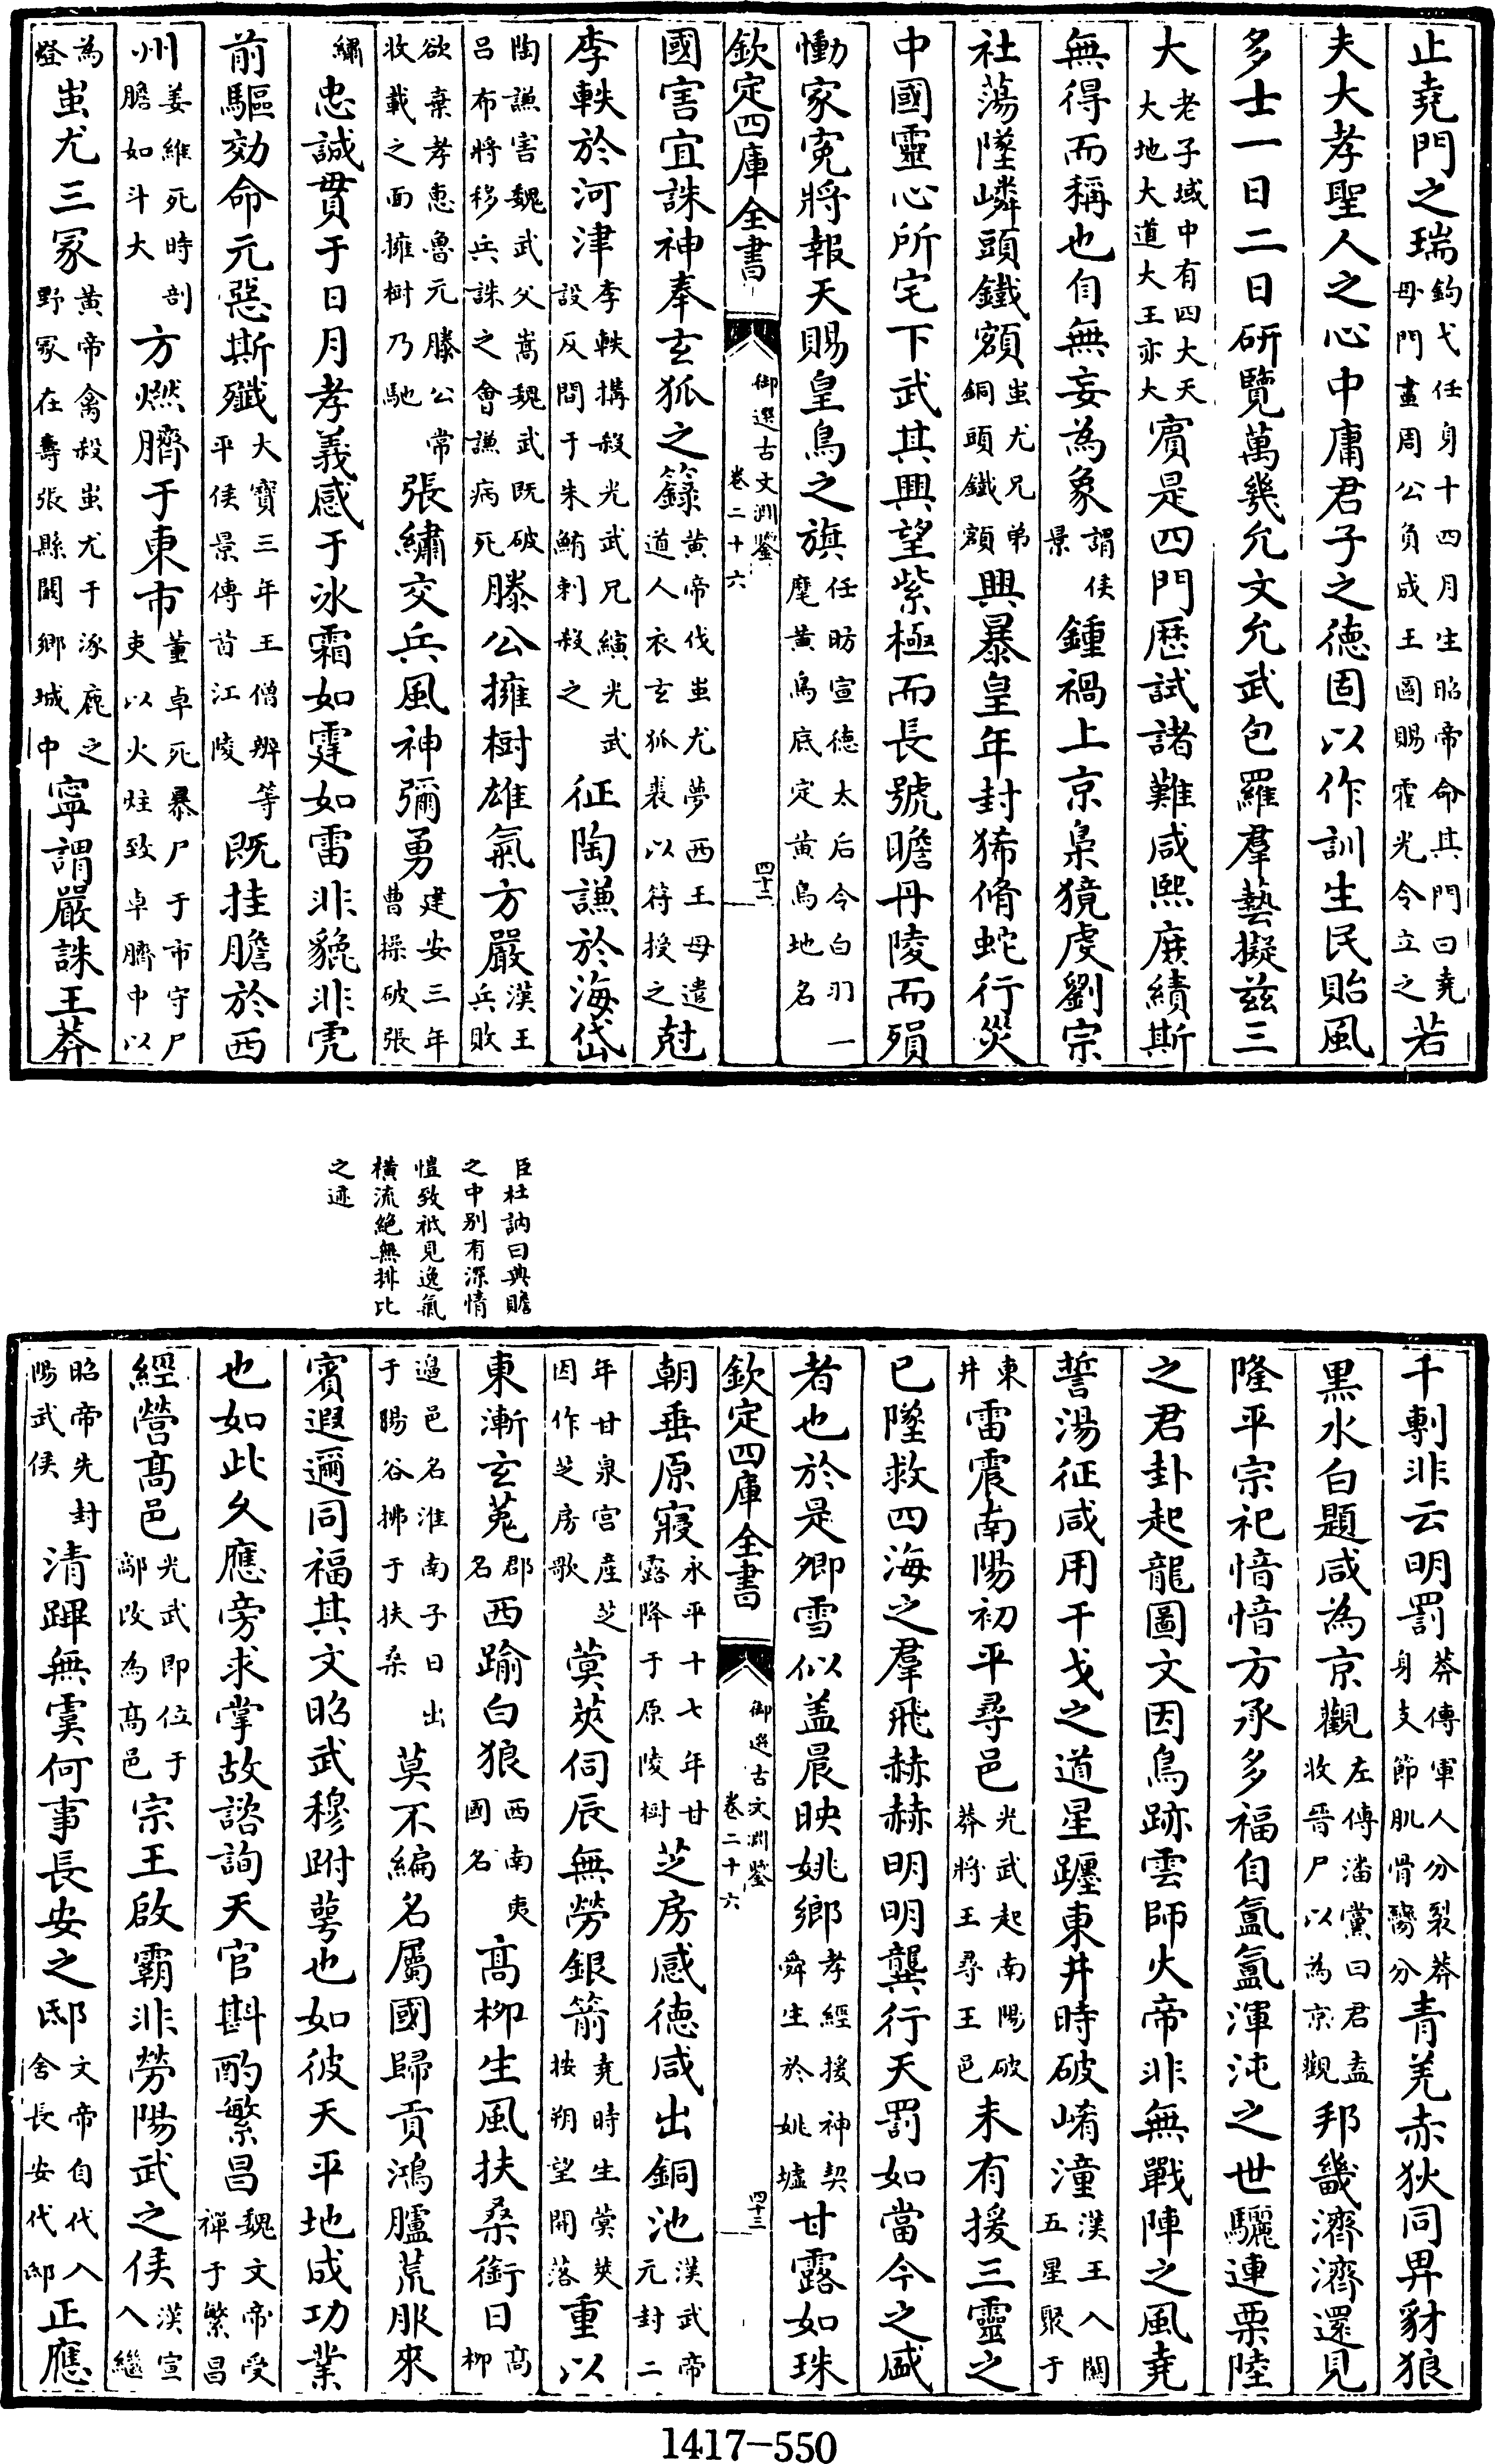 止堯門之瑞鈎弋任身十四月生昭帝命其門曰堯母門畫周公負成王圖賜霍光令立之若
夫大孝聖人之心中庸君子之德固以作訓生民貽風
多士一日二日研覽萬幾允文允武包羅羣藝擬兹三
大老子域中有四大天大地大道大王亦大賓是四門歴試諸難咸熙庶績斯
無得而稱也自無妄為象謂侯景鍾禍上京梟獍虔劉宗
社蕩墜嶙頭鐵額蚩尤兄弟銅頭鐵額興暴皇年封狶脩蛇行災
中國靈心所宅下武其興望紫極而長號瞻丹陵而殞
慟家寃將報天賜皇鳥之旗任昉宣德太后令白羽一麾黄鳥底定黄鳥地名
欽定四庫全書 御選古文淵鑒 卷二十六 四十二
國害宜誅神奉玄狐之籙黄帝伐蚩尤夢西王母遣道人衣玄狐裘以符授之尅
李軼於河津李軼搆殺光武兄縯光武設反間于朱鮪刺殺之征陶謙於海岱
陶謙害魏武父嵩魏武既破呂布將移兵誅之會謙病死滕公擁樹雄氣方嚴漢王兵敗
欲棄孝惠魯元滕公常收載之面擁樹乃馳張繡交兵風神彌勇建安三年曹操破張
繡忠誠貫于日月孝義感于冰霜如霆如雷非貔非虎
前驅効命元惡斯殲大寶三年王僧辨等平侯景傳首江陵既挂膽於西
州姜維死時剖膽如斗大方燃臍于東市董卓死暴尸于市守尸吏以火炷致卓臍中以
為燈蚩尤三冢黄帝禽殺蚩尤于涿鹿之野冢在壽張縣闞鄉城中寧謂嚴誅王莽
臣杜訥曰典贍
之中别有深情
愷致祇見逸氣
橫流絶無排比
之迹
千剸非云明罰莽傳軍人分裂莽身支節肌骨臠分青羌赤狄同畀豺狼
黒水白題咸為京觀左傳潘黨曰君盍收晉尸以為京觀邦畿濟濟還見
隆平宗祀愔愔方承多福自氤氲渾沌之世驪連栗陸
之君卦起龍圖文因鳥跡雲師火帝非無戰陣之風堯
誓湯征咸用干戈之道星躔東井時破崤潼漢王入關五星聚于
東井雷震南陽初平尋邑光武起南陽破莽將王尋王邑未有援三靈之
已墜救四海之羣飛赫赫明明龔行天罰如當今之盛
者也於是卿雪似蓋晨映姚鄉孝經援神契舜生於姚墟甘露如珠
欽定四庫全書 御選古文淵鑒 卷二十六 四十三
朝垂原寢永平十七年甘露降于原陵樹芝房感德咸出銅池漢武帝元封二
年甘泉宮產芝因作芝房歌蓂莢伺辰無勞銀箭堯時生蓂莢按朔望開落重以
東漸玄菟郡名西踰白狼西南夷國名高柳生風扶桑銜日高柳
邊邑名淮南子日出于暘谷拂于扶桑莫不編名屬國歸貢鴻臚荒服來
賓遐邇同福其文昭武穆跗萼也如彼天平地成功業
也如此久應旁求掌故諮詢天官斟酌繁昌魏文帝受禪于繁昌
經營高邑光武即位于鄗改為高邑宗王啟霸非勞陽武之侯漢宣入繼
昭帝先封陽武侯清蹕無虞何事長安之邸文帝自代入舍長安代邸正應
1417-550